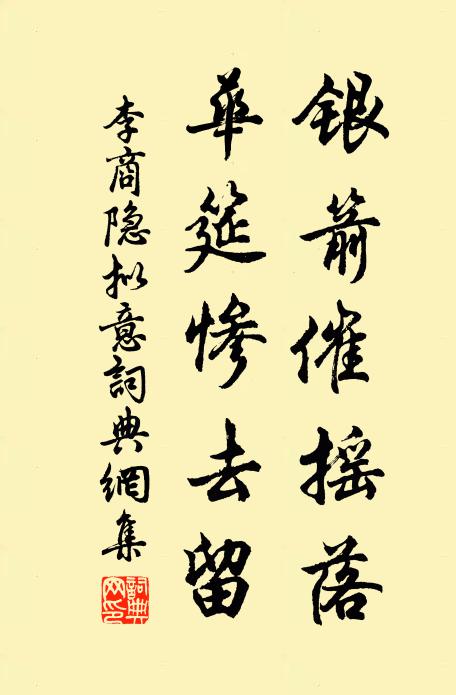 银箭催摇落
华筵惨去留
李商隐拟意詞典網集
詞典网印